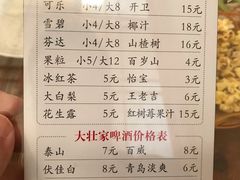 可乐 小4/大8 开卫 15元
雪碧 小4/大8 椰汁 18元
芬达 小4/大8 山楂树 16元
果粒 小5/大12 百岁山 4元
冰红茶 5元 怡宝 3元
大白梨 5元 王老吉 6元
花生露 5元 红树莓果汁 15元
大壮家啤酒价格表
泰山 7元 百威 8元
伏佳白 8元 青岛淡爽 6元